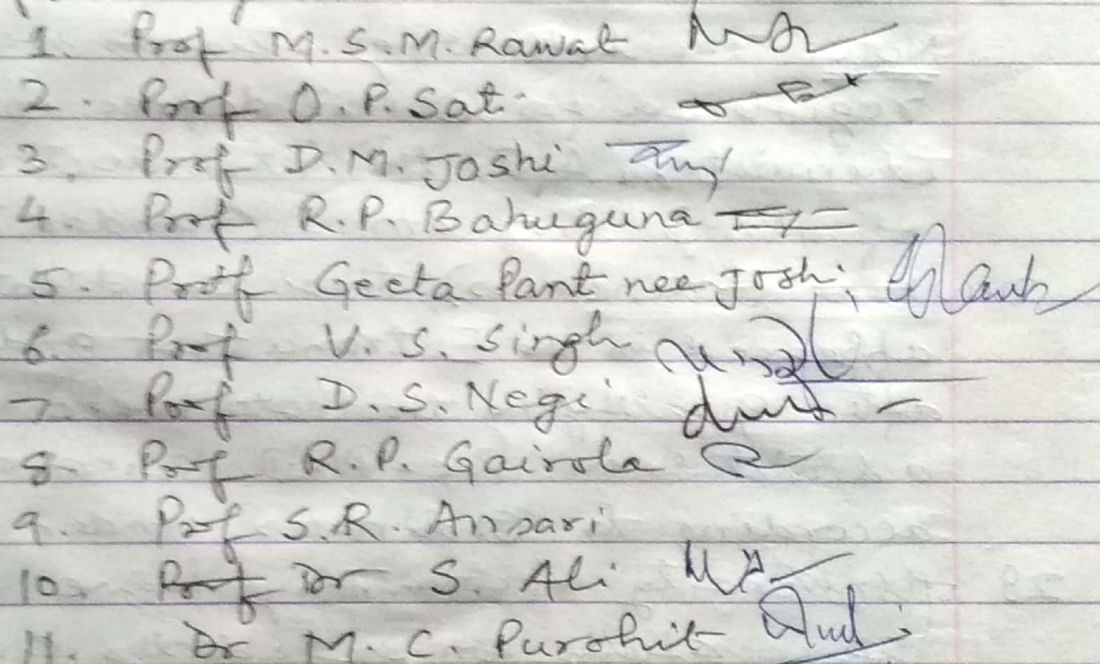 1. Prof M.S.M. Rawat
2. Prof O.P. Sati
3. Prof D.M. Joshi
4. Prof R.P. Bahuguna
5. Prof Geeta Pant nee Joshi
6. Prof V. S. Singh
7. Prof D.S. Negi
8. Prof R.P. Gairola
9. Prof S.R. Ansari
10. Prof Dr S. Ali
11. Dr M. C. Purohit